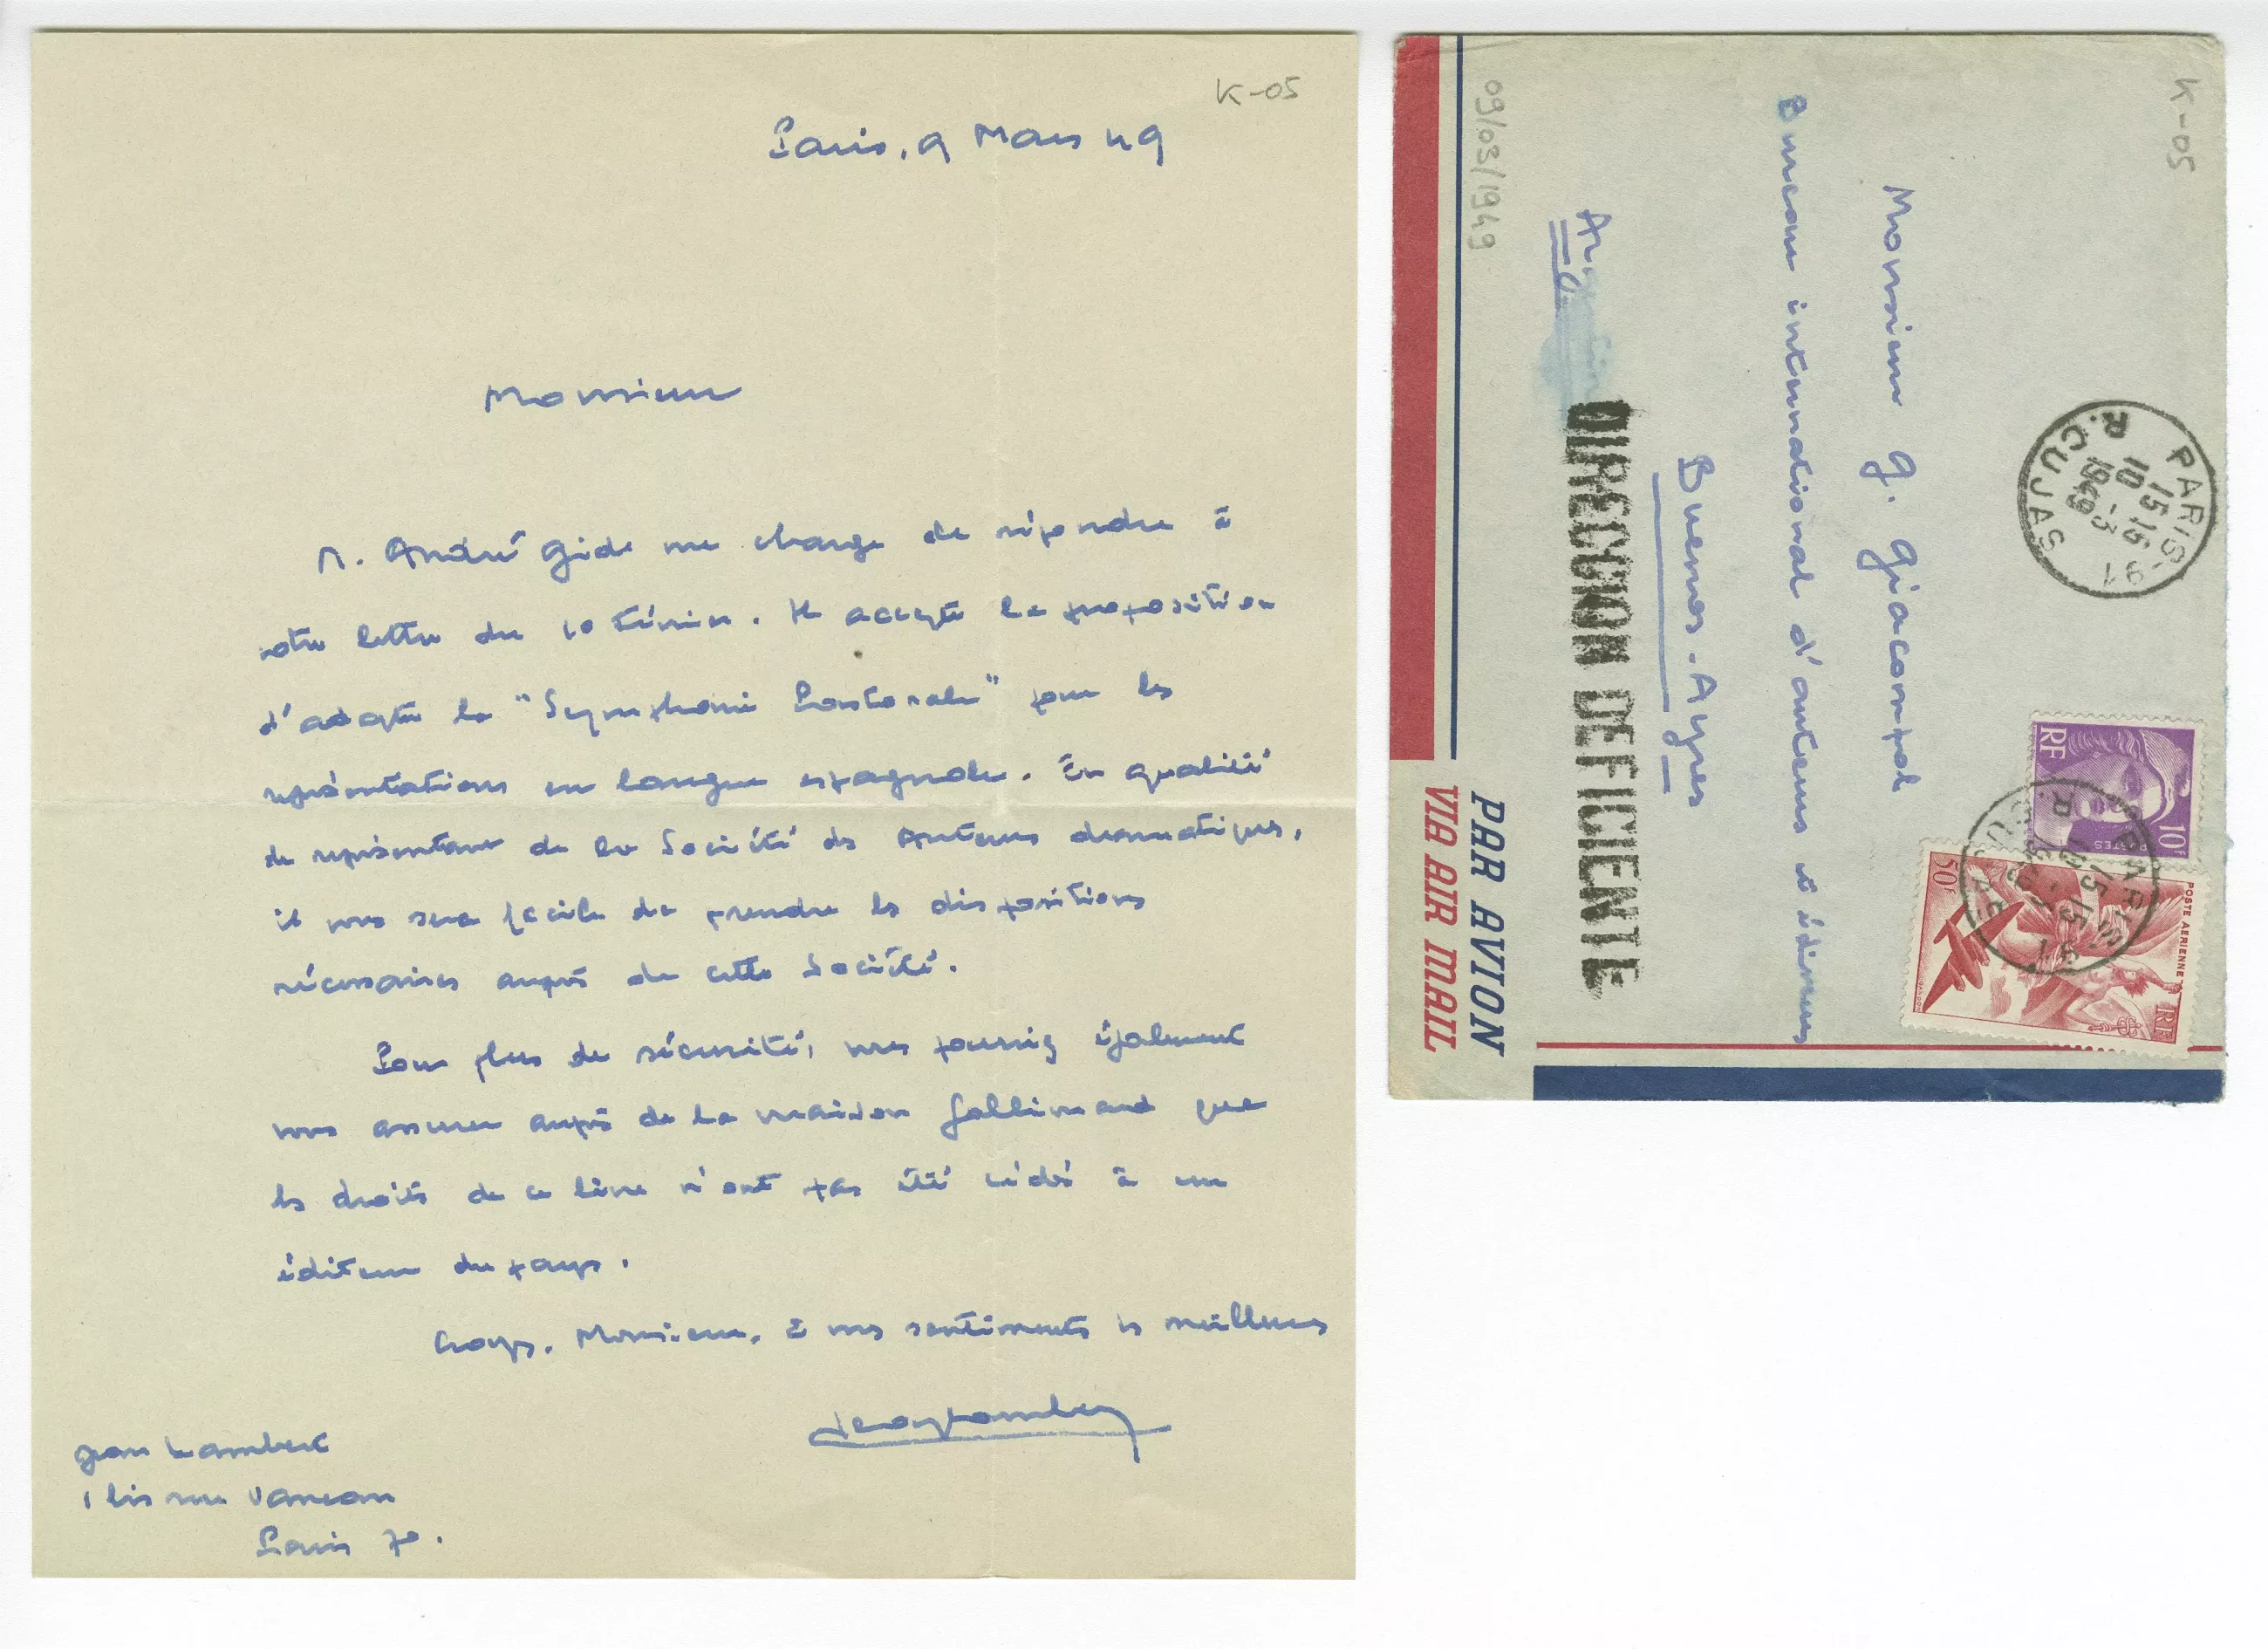 K-05
Paris, 9 Mars 49
Monsieur
M. André Gide me charge de répondre à
votre lettre du 10 Février. Il accepte la proposition
d'adapter la "Symphonie Pastorale" pour les
représentations en langue espagnole. En qualité
de représentant de la Société des Auteurs dramatiques,
il vous sera facile de prendre les dispositions
nécessaires auprès de cette Société.
Pour plus de sécurité, vous pourriez également
vous assurer auprès de la maison Gallimard que
les droits de ce livre n'ont pas été cédés à un
éditeur du pays.
Croyez, Monsieur, à mes sentiments les meilleurs
Jean Lambert
1 bis rue Vaneau
Paris 7e.
K-05
PARIS-91
15 15
10 - 3
1949
R. CUJAS
RF
10F
POSTES
POSTE AERIENNE
50F
RF
Monsieur G. Giacompol
Bureau international d'auteurs et éditeurs
Buenos-Ayres
DIRECCION DEFICIENTE
09/03/1949
PAR AVION
VIA AIR MAIL